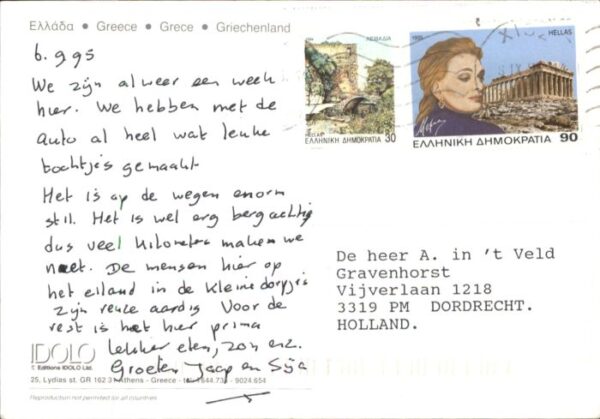 Ελλάδα • Greece • Grece • Griechenland
6.9 95
We zijn al weer een week
hier. We hebben met de
auto al heel wat leuke
tochtjes gemaakt
Het is op de wegen enorm
stil. Het is wel erg bergachtig
dus veel kilometers maken we
niet. De mensen hier op
het eiland in de kleine dorpjes
zijn reuze aardig Voor de
rest is het hier prima
lekker eten, zon enz.
Groeten Jaap en Sija
IDOLO
© Editions IDOLO Ltd.
25, Lydias st. GR 162 3 Athens - Greece - tel 644.73 - 9024.654
Reproduction not permited for all countries
ΛΕΒΑΔΙΑ
HELLAS
30
ΕΛΛΗΝΙΚΗ ΔΗΜΟΚΡΑΤΙΑ
1995
HELLAS
ΕΛΛΗΝΙΚΗ ΔΗΜΟΚΡΑΤΙΑ 90
De heer A. in 't Veld
Gravenhorst
Vijverlaan 1218
3319 PM DORDRECHT.
HOLLAND.